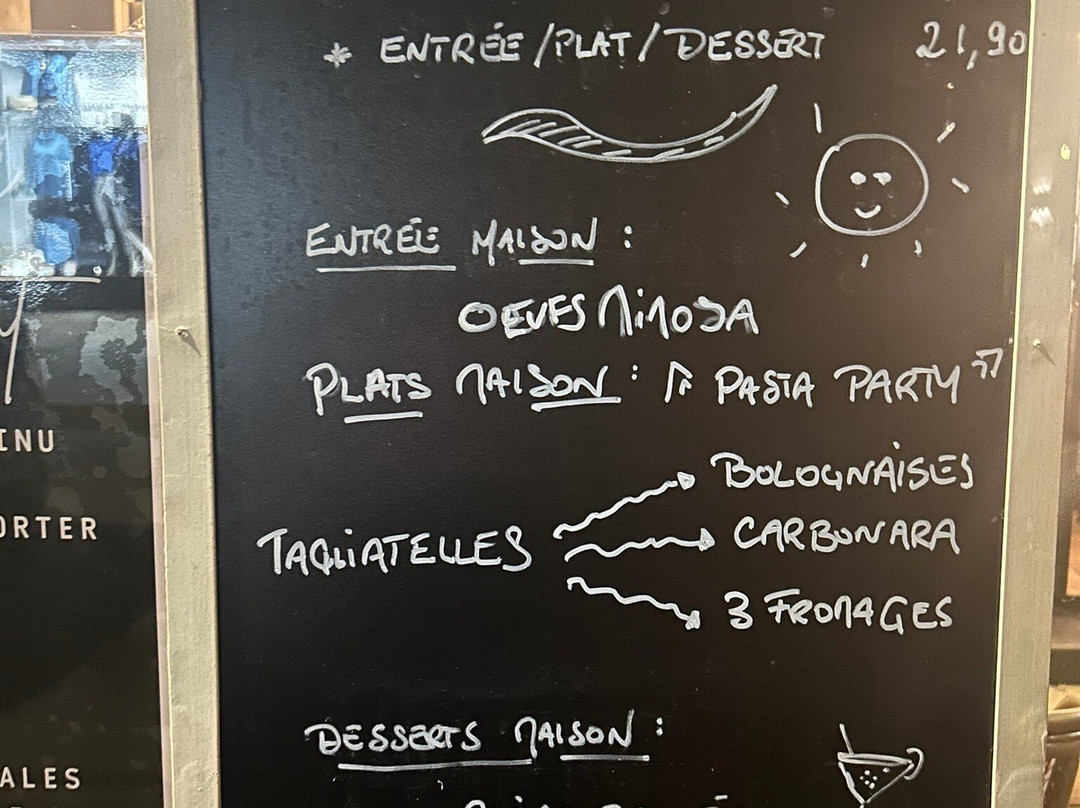 * ENTRÉE / PLAT / DESSERT 21,90
ENTRÉE MAISON :
OEUFS MIMOSA
PLATS MAISON : " PASTA PARTY "
TAGLIATELLES
BOLOGNAISES
CARBONARA
3 FROMAGES
DESSERTS MAISON :
INU
ORTER
ALES